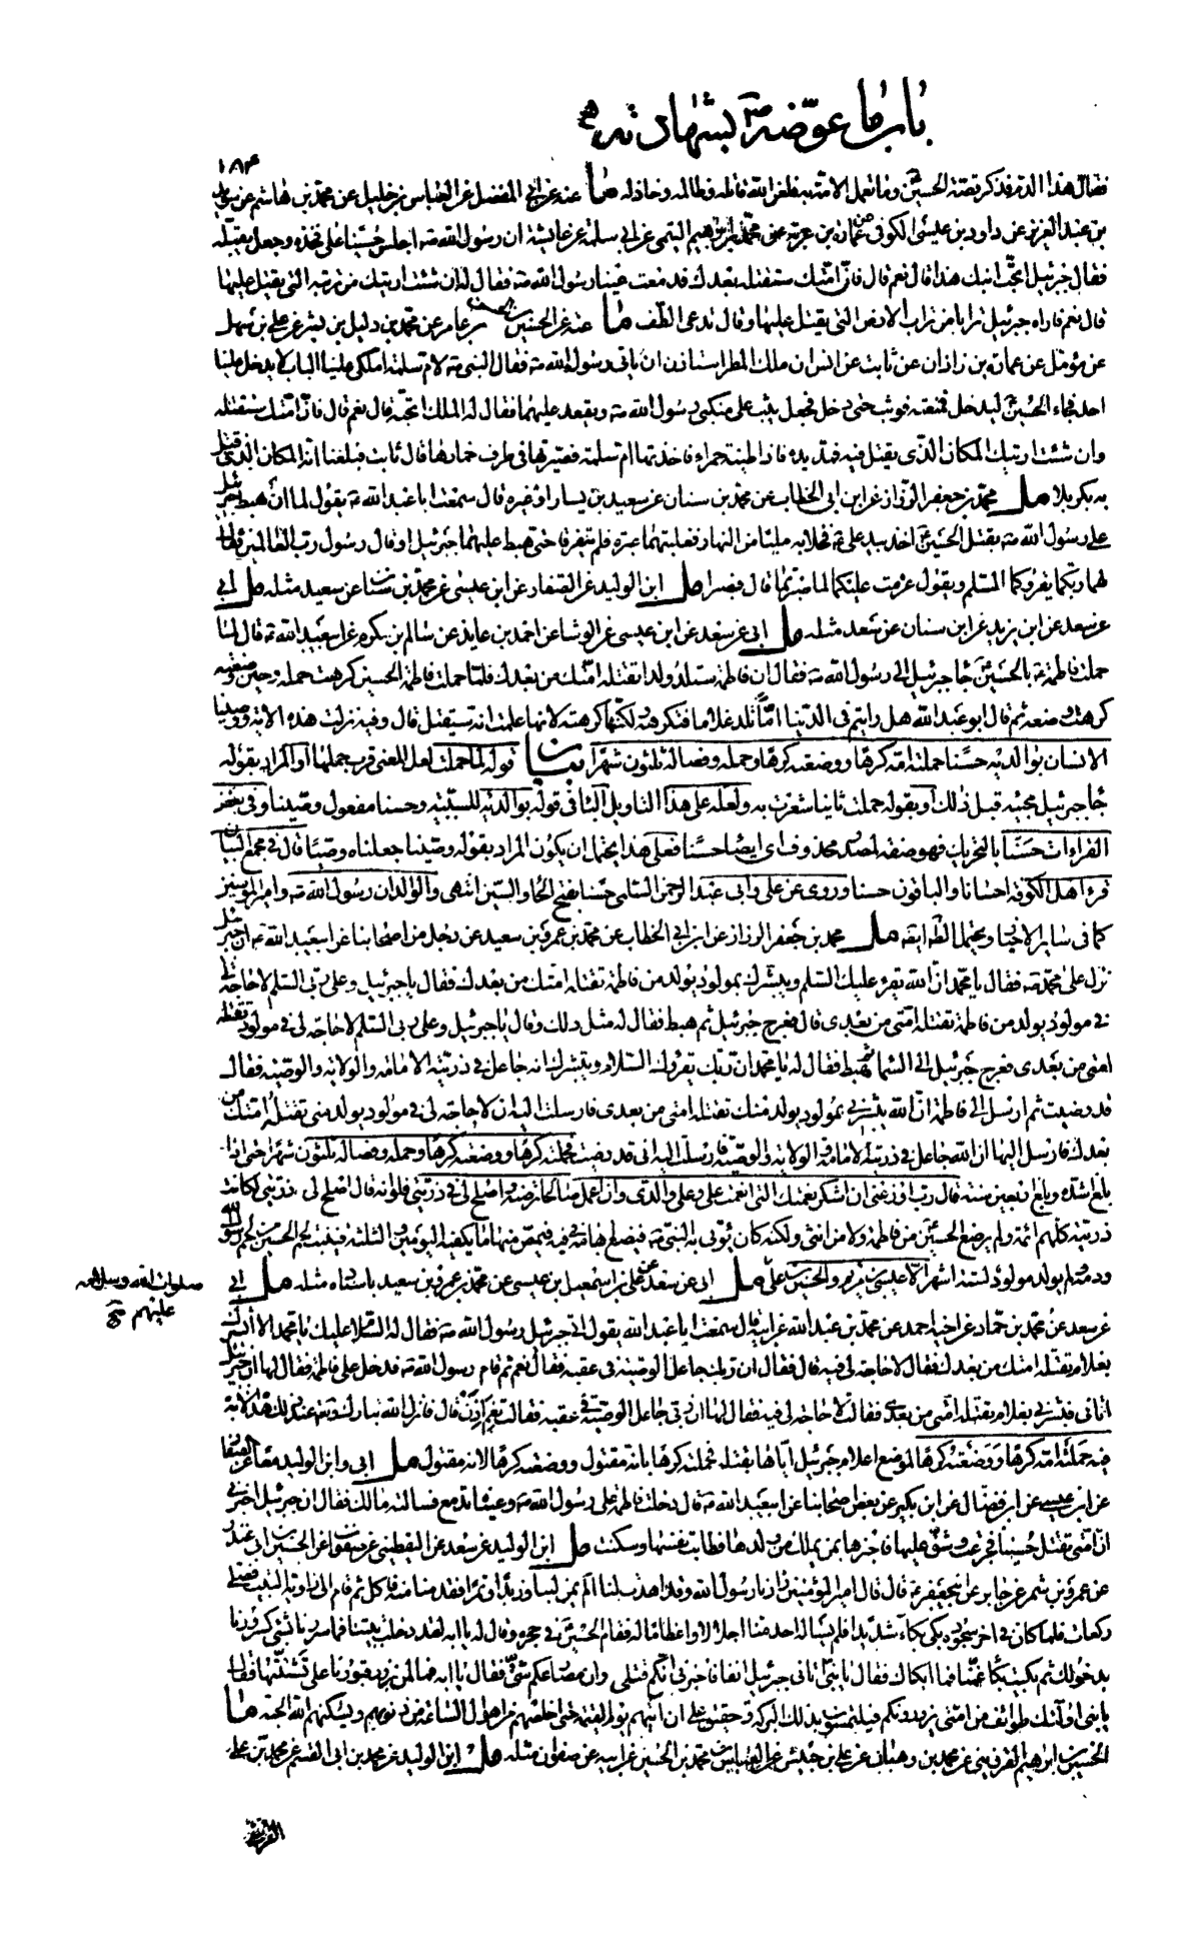 باب ما عوضه ص بشهادته
١٨٣
فقال هذا الذى فذكر قصة الحسين وما تعمل الامة به فلعن الله قاتله وظالمه وخاذله ما عنه عن ابى المفضل عن العباس بن خليل عن محمد بن هاشم عن سويد
بن عبد العزيز عن داود بن عيسى الكوفى عن عمارة بن عرية عن محمد بن ابراهيم التيمى عن ابى سلمة عن عايشة ان رسول الله ص اجلس حسينا على فخذه وجعل يقبله
فقال جبرئيل اتحب ابنك هذا قال نعم قال فان امتك ستقتله بعدك فدمعت عينا رسول الله ص فقال له ان شئت اريتك من تربته التى يقتل عليها
قال نعم فاراه جبرئيل ترابا من تراب الارض التى يقتل عليها وقال تدعى الطف ما عنه عن الحسين بن عامر عن محمد بن دليل بن بشر عن على بن سهل
عن مؤمل عن عمارة بن زاذان عن ثابت عن انس ان ملك المطر استاذن ان ياتى رسول الله ص فقال النبى ص لام سلمة املكى علينا الباب لا يدخل علينا
احد فجاء الحسين ليدخل فمنعته فوثب حتى دخل فجعل يثب على منكبى رسول الله ص ويقعد عليهما فقال له الملك اتحبه قال نعم قال فان امتك ستقتله
وان شئت اريتك المكان الذى يقتل فيه فمد يده فاذا طينة حمراء فاخذتها ام سلمة فصيرتها فى طرف خمارها قال ثابت فبلغنا انه المكان الذى قتل
به بكربلا مل محمد بن جعفر الرزاز عن ابن ابى الخطاب عن محمد بن سنان عن سعيد بن يسار او غيره قال سمعت ابا عبد الله ع يقول لما ان هبط جبرئيل
على رسول الله ص بقتل الحسين ع اخذ بيد على ع فخلا به مليا من النهار فغلبتهما عبرة فلم يتفرقا حتى هبط عليهما جبرئيل او قال رسول رب العالمين فقال
لهما ربكما يقرؤكما السلم ويقول عزمت عليكما لما صبرتما قال فصبرا مل ابن الوليد عن الصفار عن ابن عيسى عن محمد بن سنان عن سعيد مثله مل ابى
عن سعد عن ابن يزيد عن ابن سنان عن سعد مثله مل ابى عن سعد عن ابن عيسى عن الوشا عن احمد بن عايذ عن سالم بن مكرم عن ابيعبد الله ع قال لما
حملت فاطمة ع بالحسين ع جاء جبرئيل الى رسول الله ص فقال ان فاطمة ستلد ولدا تقتله امتك من بعدك فلما حملت فاطمة الحسين كرهت حمله وحين وضعته
كرهت وضعه ثم قال ابو عبد الله هل رايتم فى الدنيا اما تلد غلاما فتكرهه ولكنها كرهته لانها علمت انه سيقتل قال وفيه نزلت هذه الاية ووصينا
الانسان بوالديه حسنا حملته امه كرها ووضعته كرها وحمله وفصاله ثلثون شهرا بيان قوله لما حملت لعل المعنى قرب حملها او المراد بقوله
جاء جبرئيل مجيئه قبل ذلك او بقوله حملت ثانيا شعرت به ولعله على هذا التاويل الباء فى قوله بوالديه للسببية وحسنا مفعول وصينا وفى بعض
القراءات حسنا بالتحريك فهو صفة لمصدر محذوف اى ايصاء حسنا فعلى هذا يحتمل ان يكون المراد بقوله وصينا جعلناه وصيا قال فى مجمع البيان
قرء اهل الكوفة احسانا والباقون حسنا وروى عن على وابى عبد الرحمن السلمى حسنا بفتح الحاء والسين انتهى والوالدان رسول الله ص وامير المؤمنين
كما فى ساير الاخبار ويحتمل الظاهر ايضا مل محمد بن جعفر الرزاز عن ابن ابى الخطاب عن محمد بن عمرو بن سعيد عن رجل من اصحابنا عن ابيعبد الله ع ان جبرئيل
نزل على محمد ص فقال يا محمد ان الله يقرء عليك السلم ويبشرك بمولود يولد من فاطمة تقتله امتك من بعدك فقال يا جبرئيل وعلى ربى السلم لا حاجة لى
فى مولود يولد من فاطمة تقتله امتى من بعدى قال فعرج جبرئيل ثم هبط فقال له مثل ذلك وقال يا جبرئيل وعلى ربى السلم لا حاجة لى فى مولود تقتله
امتى من بعدى فعرج جبرئيل الى السماء ثم هبط فقال له يا محمد ان ربك يقرؤك السلام ويبشرك انه جاعل فى ذريته الامامة والولاية والوصية فقال
قد رضيت ثم ارسل الى فاطمة ان الله يبشرنى بمولود يولد منك تقتله امتى من بعدى فارسلت اليه ان لا حاجة لى فى مولود يولد منى تقتله امتك من
بعدك فارسل اليها ان الله جاعل فى ذريته الامامة والولاية والوصية فارسلت اليه انى قد رضيت فحملته كرها ووضعته كرها وحمله وفصاله ثلثون شهرا حتى اذا
بلغ اشده وبلغ اربعين سنة قال رب اوزعنى ان اشكر نعمتك التى انعمت على وعلى والدى وان اعمل صالحا ترضيه واصلح لى فى ذريتى فلو انه قال اصلح لى ذريتى لكانت
ذريته كلهم ائمة ولم يرضع الحسين ع من فاطمة ولا من انثى ولكنه كان يؤتى به النبى ص فيضع ابهامه فى فيه فيمص منها ما يكفيه اليومين والثلثة فنبت لحم الحسين من لحم رسول الله
ودمه ولم يولد مولود لستة اشهر الا عيسى بن مريم والحسين بن على مل ابى عن سعد عن على بن اسمعيل بن عيسى عن محمد بن عمرو بن سعيد باسناده مثله مل ابى
صلوات الله وسلامه
عليهم صح
عن سعد عن محمد بن حماد عن اخيه احمد عن محمد بن عبد الله عن ابيه قال سمعت ابا عبد الله يقول اتى جبرئيل رسول الله ص فقال له السلام عليك يا محمد الا ابشرك
بغلام تقتله امتك من بعدك فقال لا حاجة لى فيه قال فقال ان ربك جاعل الوصية فى عقبه فقال نعم ثم قام رسول الله ص فدخل على فاطمة فقال لها ان جبرئيل
اتانى فبشرنى بغلام تقتله امتى من بعدى فقالت لا حاجة لى فيه فقال لها ان ربى جاعل الوصية فى عقبه فقالت نعم اذن قال فانزل الله تبارك وتعالى عند ذلك هذه الاية
فيه حملته امه كرها ووضعته كرها لموضع اعلام جبرئيل اياها بقتله فحملته كرها بانه مقتول ووضعته كرها لانه مقتول مل ابى وابن الوليد معا عن الصفار
عن ابن عيسى عن ابن فضال عن ابن بكير عن بعض اصحابنا عن ابيعبد الله ع قال دخلت فاطمة على رسول الله ص وعيناه تدمع فسالته مالك فقال ان جبرئيل اخبرنى
ان امتى تقتل حسينا فجزعت وشق عليها فاخبرها بمن يملك من ولدها فطابت نفسها وسكنت مل ابن الوليد عن سعد عن اليقطينى عن صفوان عن الحسين بن ابى غندر
عن عمرو بن شمر عن جابر عن ابيجعفر ع قال قال امير المؤمنين زارنا رسول الله وقد اهدت لنا ام ايمن لبنا وزبدا وتمرا فقدمنا منه فاكل ثم قام الى زاوية البيت فصلى
ركعات فلما كان فى اخر سجوده بكى بكاء شديدا فلم يسأله احد منا اجلالا واعظاما له فقام الحسين فى حجره وقال له يا ابه لقد دخلت بيتنا فما سررنا بشئ كسرورنا
بدخولك ثم بكيت بكاء غمنا فما ابكاك فقال يا بنى اتانى جبرئيل انفا فاخبرنى انكم قتلى وان مصارعكم شتى فقال يا ابه فما لمن يزور قبورنا على تشتتها فقال
يا بنى اولئك طوائف من امتى يزورونكم فيلتمسون بذلك البركة وحقيق على ان آتيهم يوم القيمة حتى اخلصهم من اهوال الساعة من ذنوبهم ويسكنهم الله الجنة ما
الحسين بن ابراهيم القزوينى عن محمد بن وهبان عن على بن حبيش عن العباس بن محمد بن الحسين عن ابيه عن صفوان مثله مل ابن الوليد عن محمد بن ابى القسم عن محمد بن على
القرشى